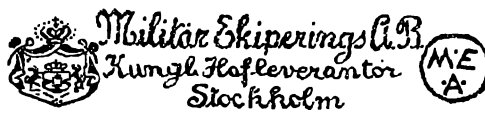 Militär Ekiperings A.B.
Kungl. Hofleverantör
Stockholm
M·E
·A·